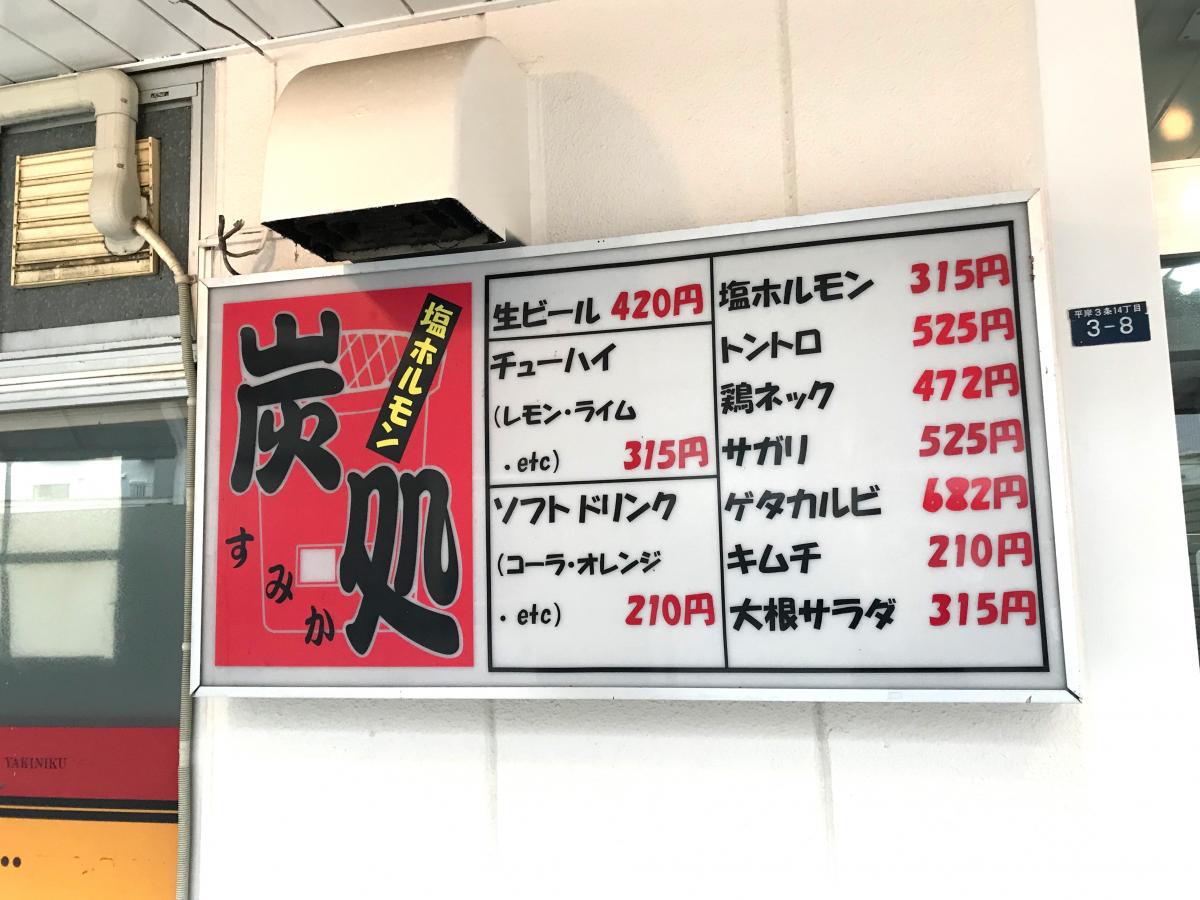 塩ホルモン
炭処
すみか
生ビール 420円
チューハイ
(レモン・ライム
・etc) 315円
ソフトドリンク
(コーラ・オレンジ
・etc) 210円
塩ホルモン 315円
トントロ 525円
鶏ネック 472円
サガリ 525円
ゲタカルビ 682円
キムチ 210円
大根サラダ 315円
平岸3条14丁目
3-8
YAKINIKU